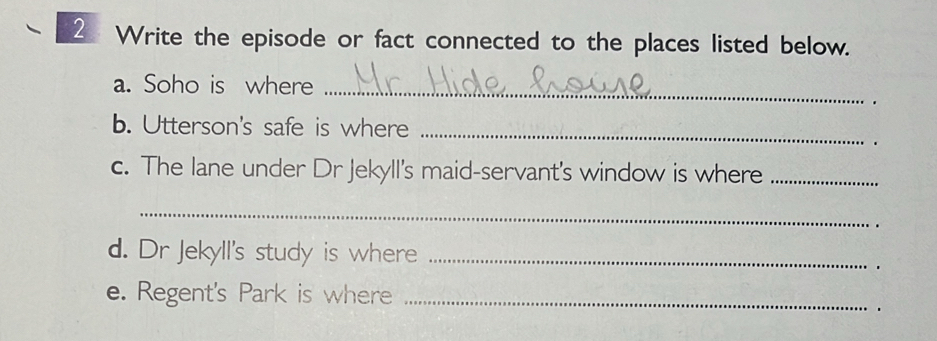 2 Write the episode or fact connected to the places listed below.
a. Soho is where Mr. Hide house .
b. Utterson's safe is where .
c. The lane under Dr Jekyll's maid-servant's window is where
.
d. Dr Jekyll's study is where .
e. Regent's Park is where .